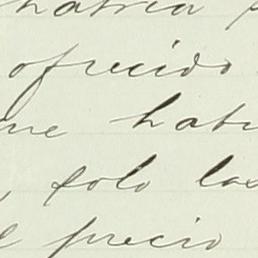 habria
ofrecido
que hab
, solo las
el precio